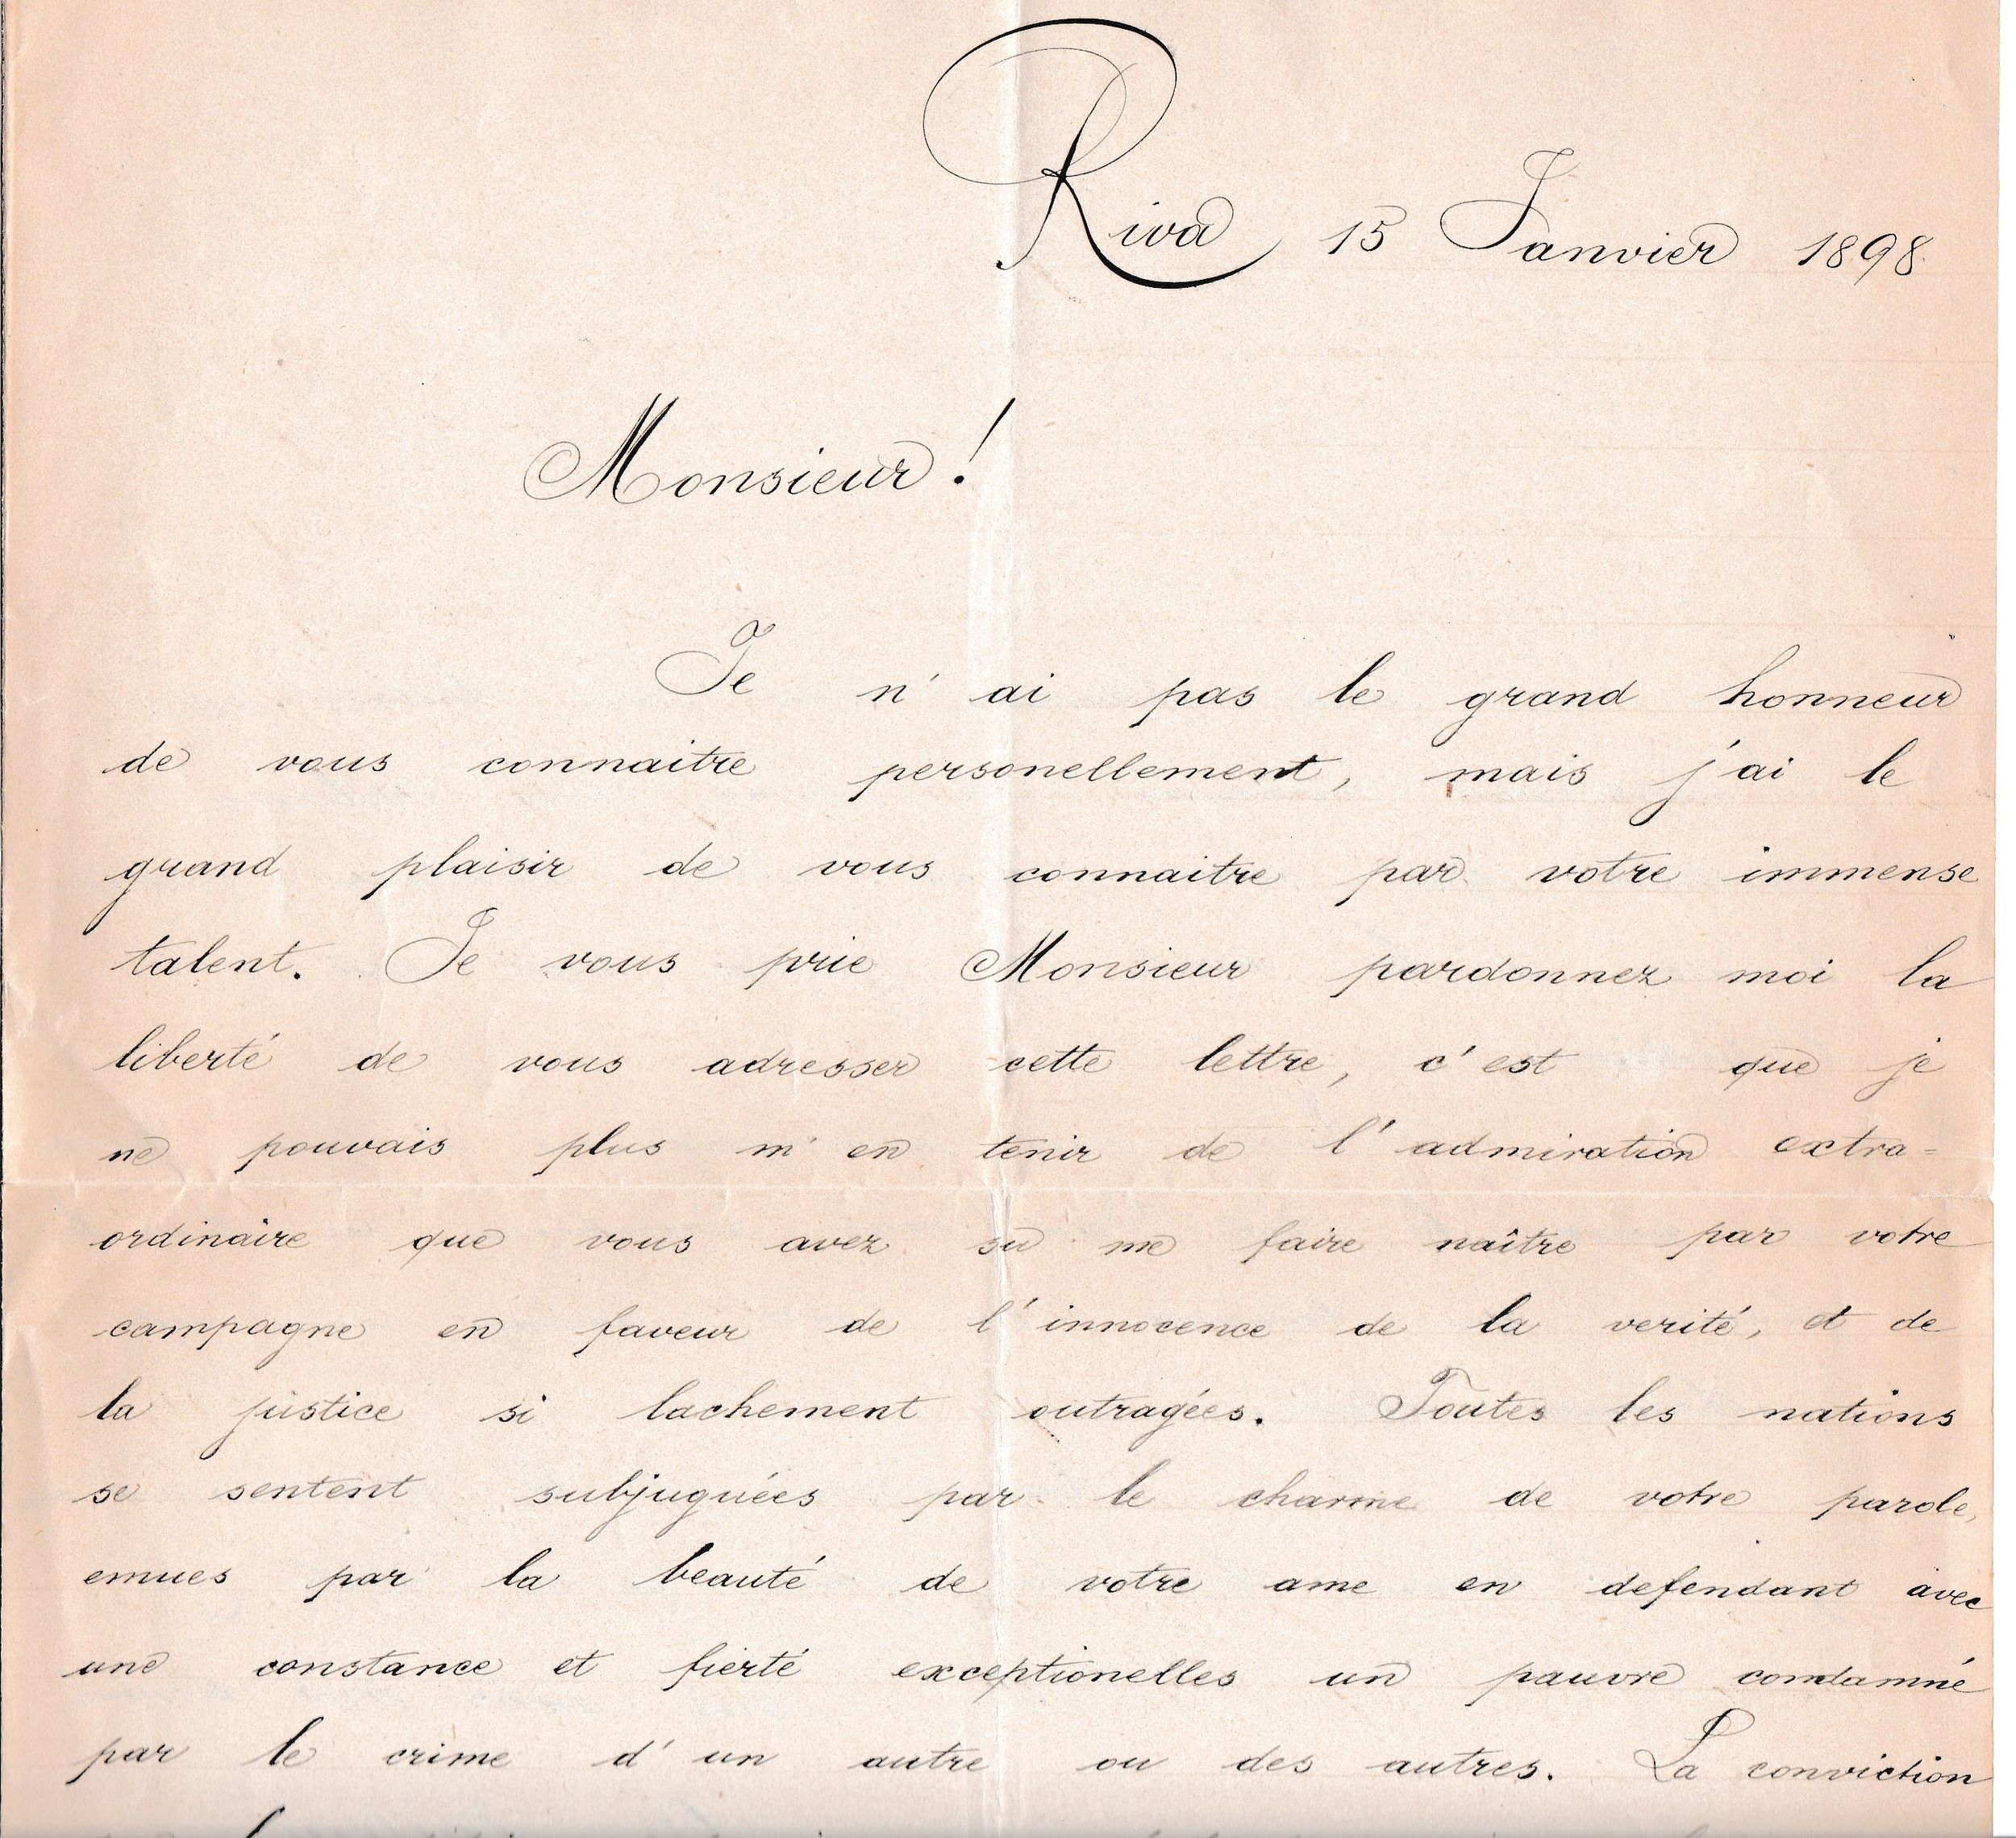 Riva 15 Janvier 1898.
Monsieur!
Je n'ai pas le grand honneur
de vous connaitre personellement, mais j'ai le
grand plaisir de vous connaitre par votre immense
talent. Je vous prie Monsieur pardonnez moi la
liberté de vous adresser cette lettre, c'est que je
ne pouvais plus m'en tenir de l'admiration extra-
ordinaire que vous avez su me faire naître par votre
campagne en faveur de l'innocence de la verité, et de
la justice si lachement outragées. Toutes les nations
se sentent subjuguées par le charme de votre parole,
emues par la beauté de votre ame en defendant avec
une constance et fierté exceptionelles un pauvre condamné
par le crime d'un autre ou des autres. La conviction